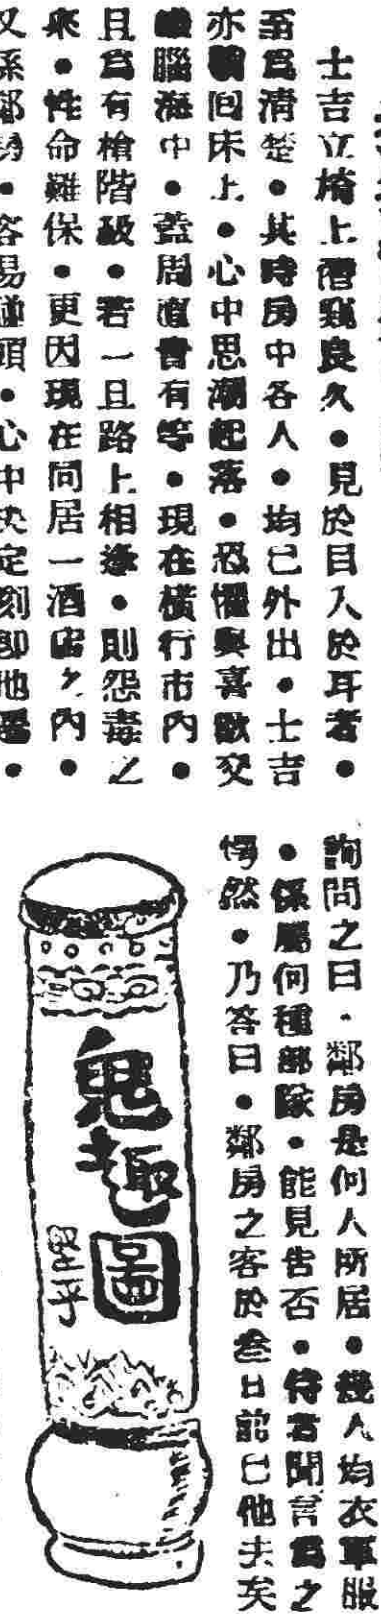 士吉立椅上潛窺良久●見於目入於耳者●
至爲清楚●其時房中各人●均已外出●士吉
亦囘床上●心中思潮起落●恐懼與喜歡交
腦海中●藍周直曾有等●現在橫行市內●
且爲有槍階級●若一旦路上相逢●則怨毒之
來●性命難保●更因現在同居一酒店之內●
又係鄰房●容易碰頭●心中決定刻即他遷●
詢問之曰●鄰房是何人所居●幾人均衣軍服
●係屬何種部隊●能見告否●侍者聞言爲之
愕然●乃答曰●鄰房之客於叁日前已他去矣
鬼趣圖
堅乎